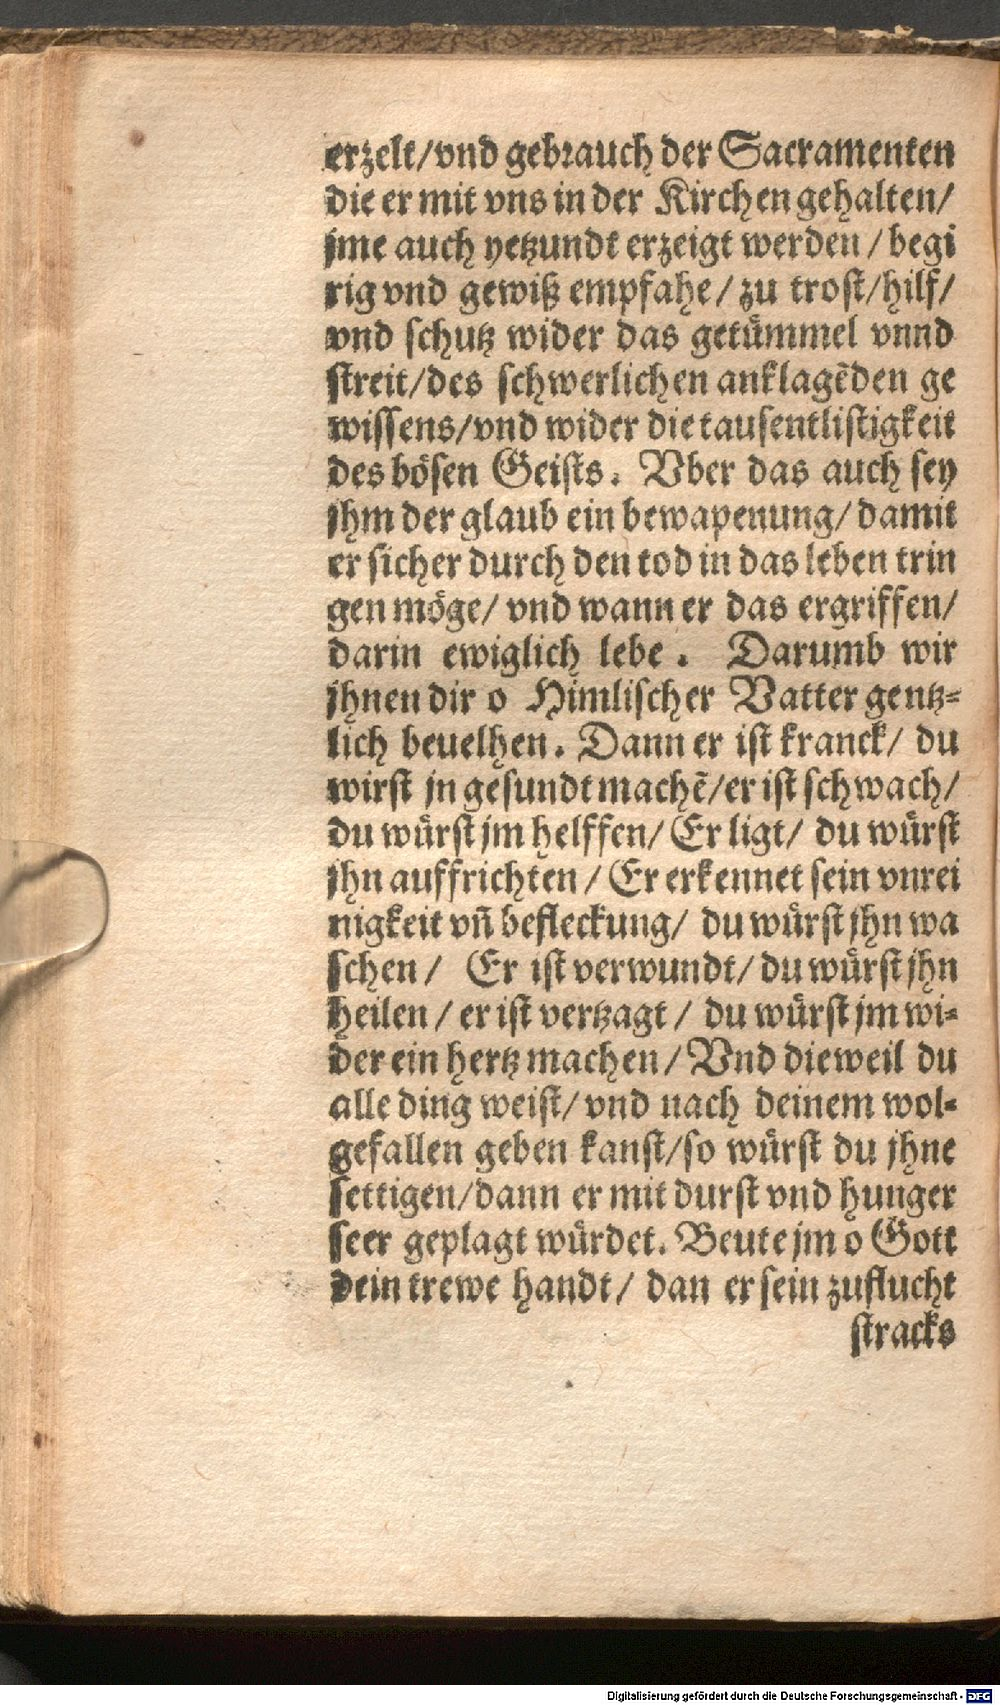 erzelt/vnd gebrauch der Sacramenten
die er mit vns in der Kirchen gehalten/
jme auch yetzundt erzeigt werden / begi
rig vnd gewiß empfahe/ zu trost/hilf/
vnd schutz wider das getümmel vnnd
streit/des schwerlichen anklagẽden ge
wissens/vnd wider die tausentlistigkeit
des bösen Geists. Vber das auch sey
jhm der glaub ein bewapenung/ damit
er sicher durch den tod in das leben trin
gen möge/ vnd wann er das ergriffen/
darin ewiglich lebe. Darumb wir
jhnen dir o Himlischer Vatter gentz-
lich beuelhen. Dann er ist kranck/ du
wirst jn gesundt machẽ/er ist schwach/
du würst jm helffen/ Er ligt/ du würst
jhn auffrichten / Er erkennet sein vnrei
nigkeit vñ befleckung/ du würst jhn wa
schen / Er ist verwundt/ du würst jhn
heilen / er ist vertzagt / du würst jm wi-
der ein hertz machen / Vnd dieweil du
alle ding weist/ vnd nach deinem wol-
gefallen geben kanst/so würst du jhne
settigen/dann er mit durst vnd hunger
seer geplagt würdet. Beute jm o Gott
dein trewe handt/ dan er sein zuflucht
stracks
Digitalisierung gefördert durch die Deutsche Forschungsgemeinschaft - DFG